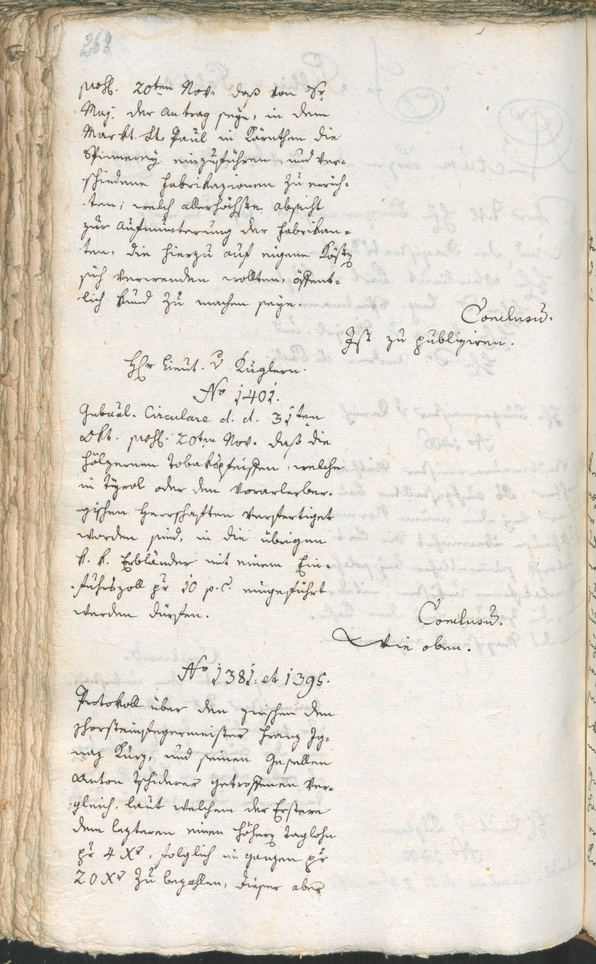 268
präs. 20ten Nov. daß von Sr
Maj. der Antrag seye, in dem
Markt St. Paul in Kärnthen die
Spinnerey einzuführen und ver-
schiedene Fabrikazionen zu errich-
ten; welch allerhöchste Absicht
zur Aufmunterung der Fabrikan-
ten, die hierzu auf eigene Kösten
sich verwenden wollten, öffent-
lich kund zu machen seye.
Conclusū.
Ist zu publiziren.
H. Lieut. v Kuglern.
No 1401.
Gubūal. Circulare d. d. 31ten
Okt. präs. 20ten Nov. daß die
hölzernen Tobaköpfe, welche
in Tyrol oder den Vorarlber-
gischen Herrschaften verfertiget
worden sind, in die übrigen
k. k. Erbländer mit einem Ein-
fuhrszoll pr 10 p. C. eingeführt
werden dürfen.
Conclusū.
Wie oben.
No 1381. et 1395.
Protokoll über den zwischen dem
Schorsteinfegermeister Franz Ig-
naz Kurz, und seinen Gesellen
Anton Tschiderer getroffenen Ver-
gleich, laut welchem der Erstere
dem lezteren einen höhern Taglohn
pr 4 Xr, folglich in ganzen pr
20 Xr zu bezahlen, dieser aber